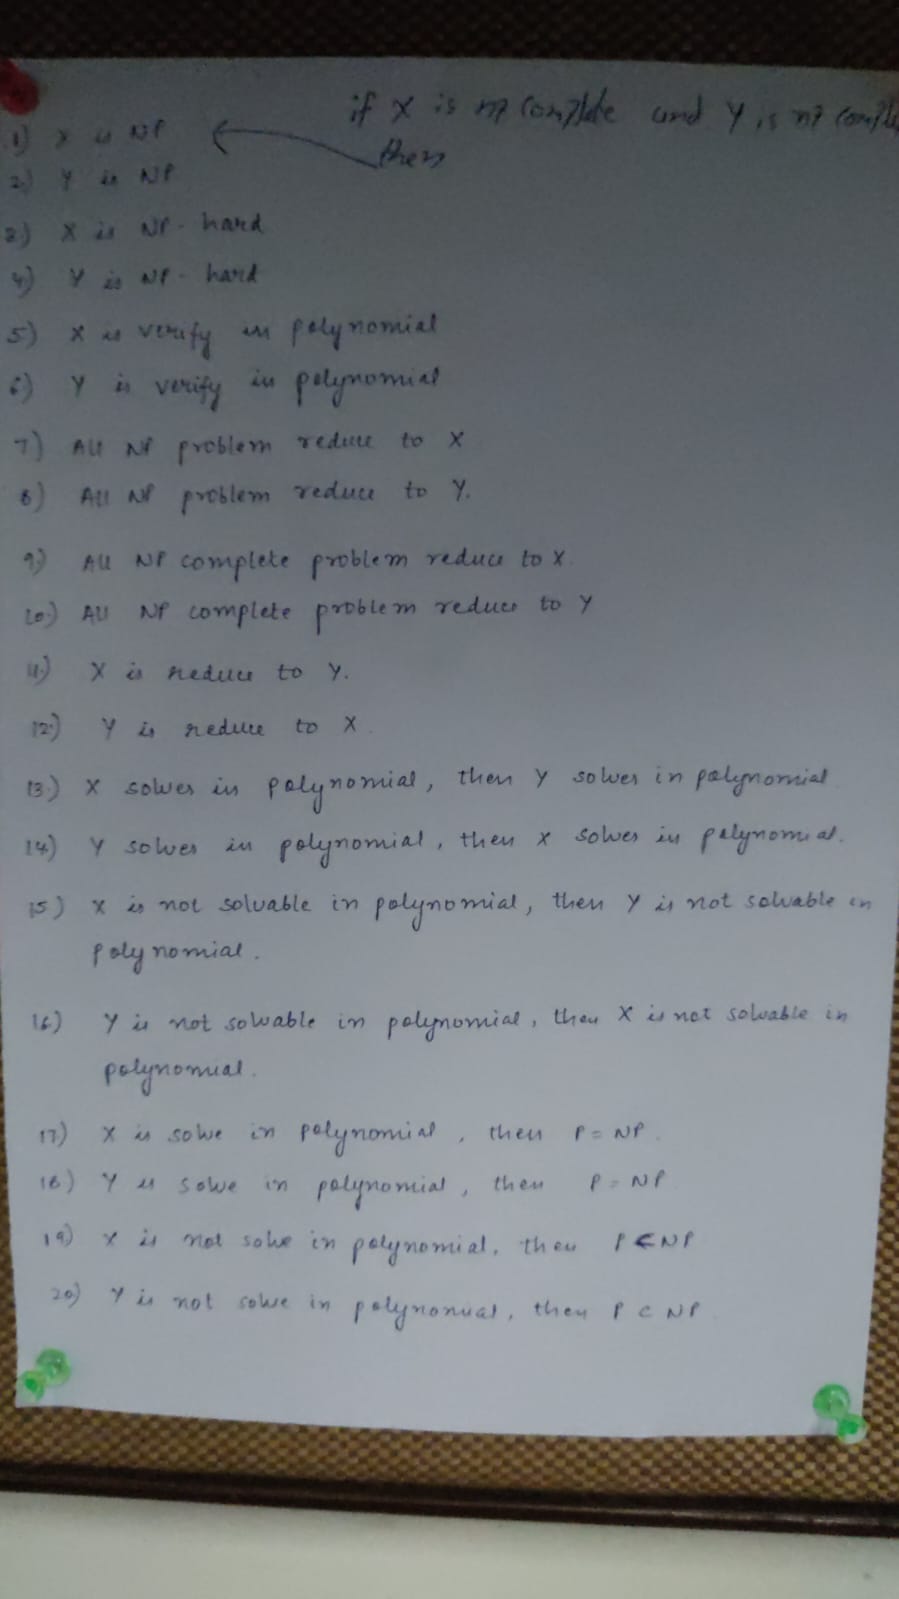 if X is np complete and Y is np comple
then
1) X is NP
2) Y is NP
3) X is NP-hard
4) Y is NP-hard
5) X is verify in polynomial
6) Y is verify in polynomial
7) All NP problem reduce to X
8) All NP problem reduce to Y.
9.) All NP complete problem reduce to X.
10.) All NP complete problem reduce to Y
11.) X is reduce to Y.
12.) Y is reduce to X.
13.) X solves in polynomial, then y solves in polynomial
14) Y solves in polynomial, then x solves in polynomial.
15) X is not solvable in polynomial, then Y is not solvable in
polynomial.
16) Y is not solvable in polynomial, then X is not solvable in
polynomial.
17) X is solve in polynomial, then P = NP.
18) Y is solve in polynomial, then P = NP
19) X is not solve in polynomial. then P ⊂ NP
20) Y is not solve in polynomial, then P ⊂ NP.